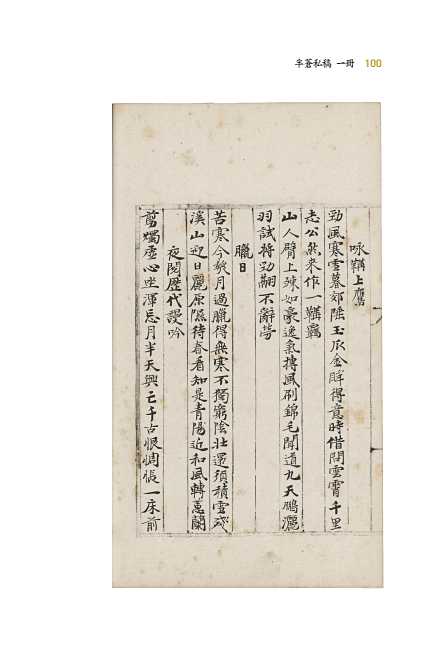 半蒼私稿 一冊 100
咏鞲上鷹
勁風寒雪暮郊陲玉爪金眸得意時借問雲霄千里
志公然来作一鞲羈
山人臂上竦如豪逸氣摶風刷錦毛聞道九天鵬灑
羽試將勁翮不辭勞
臘日
苦寒今幾月過臘得無寒不獨窮陰壮還須積雪殘
溪山迎日麗原隰待春看知是青陽近和風轉蕙蘭
夜閱歷代謾吟
剪燭虛心坐渾忘月半天興亡千古恨惆悵一床前